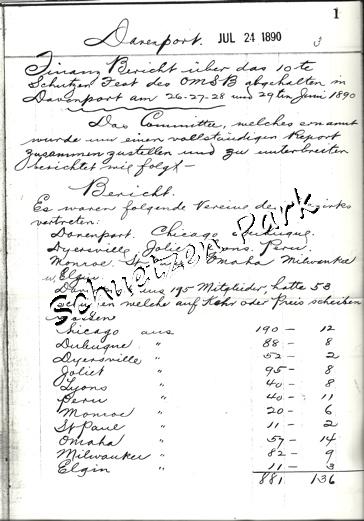 1
Davenport. JUL 24 1890 3
Finanz Bericht über das 10te
Schutzen Fest des OMSB abgehalten in
Davenport am 26-27-28 und 29ten Juni 1890
Das Committee, welches ernannt
wurde um einen vollständigen Report
zusammenzustellen und zu unterbreiten
berichtet wie folgt-
Bericht.
Es waren folgende Vereine des
vertreten:
Davenport. Chicago Dubuque.
Dyersville Joliet Lyons. Peru.
Monroe St Omaha Milwaukee
u. Elgin.
aus 195 Mitglieder, hatte 53
welche auf Kehr oder Preis scheiben
Chicago aus 190 - 12
Dubuque " 88 - 8
Dyersville " 52 - 2
Joliet " 95 - 8
Lyons " 40 - 8
Peru " 40 - 11
Monroe " 20 - 6
St Paul " 11 - 2
Omaha " 57 - 14
Milwaukee " 82 - 9
Elgin " 11 - 3
881 136
Schuetzen Park